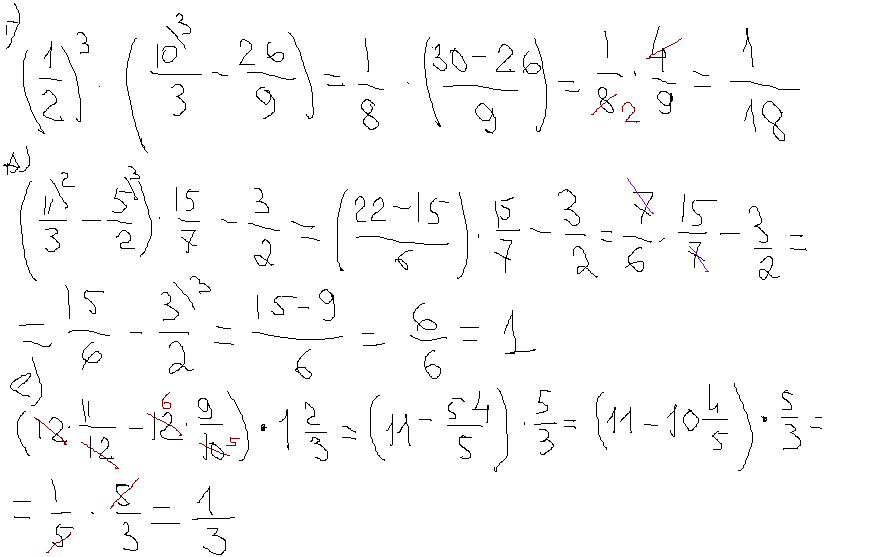 г)
(1/2)^3 · (10\3/3 - 26/9) = 1/8 · (30-26/9) = 1/8 2 · 4/9 = 1/18
д)
(11\2/3 - 5\3/2) · 15/7 - 3/2 = (22-15/6) · 15/7 - 3/2 = 7/6 · 15/7 - 3/2 =
= 15/6 - 3\3/2 = 15-9/6 = 6/6 = 1
е)
(12 · 11/12 - 12 6 · 9/10 5) · 1 2/3 = (11 - 54/5) · 5/3 = (11 - 10 4/5) · 5/3 =
= 1/5 · 5/3 = 1/3